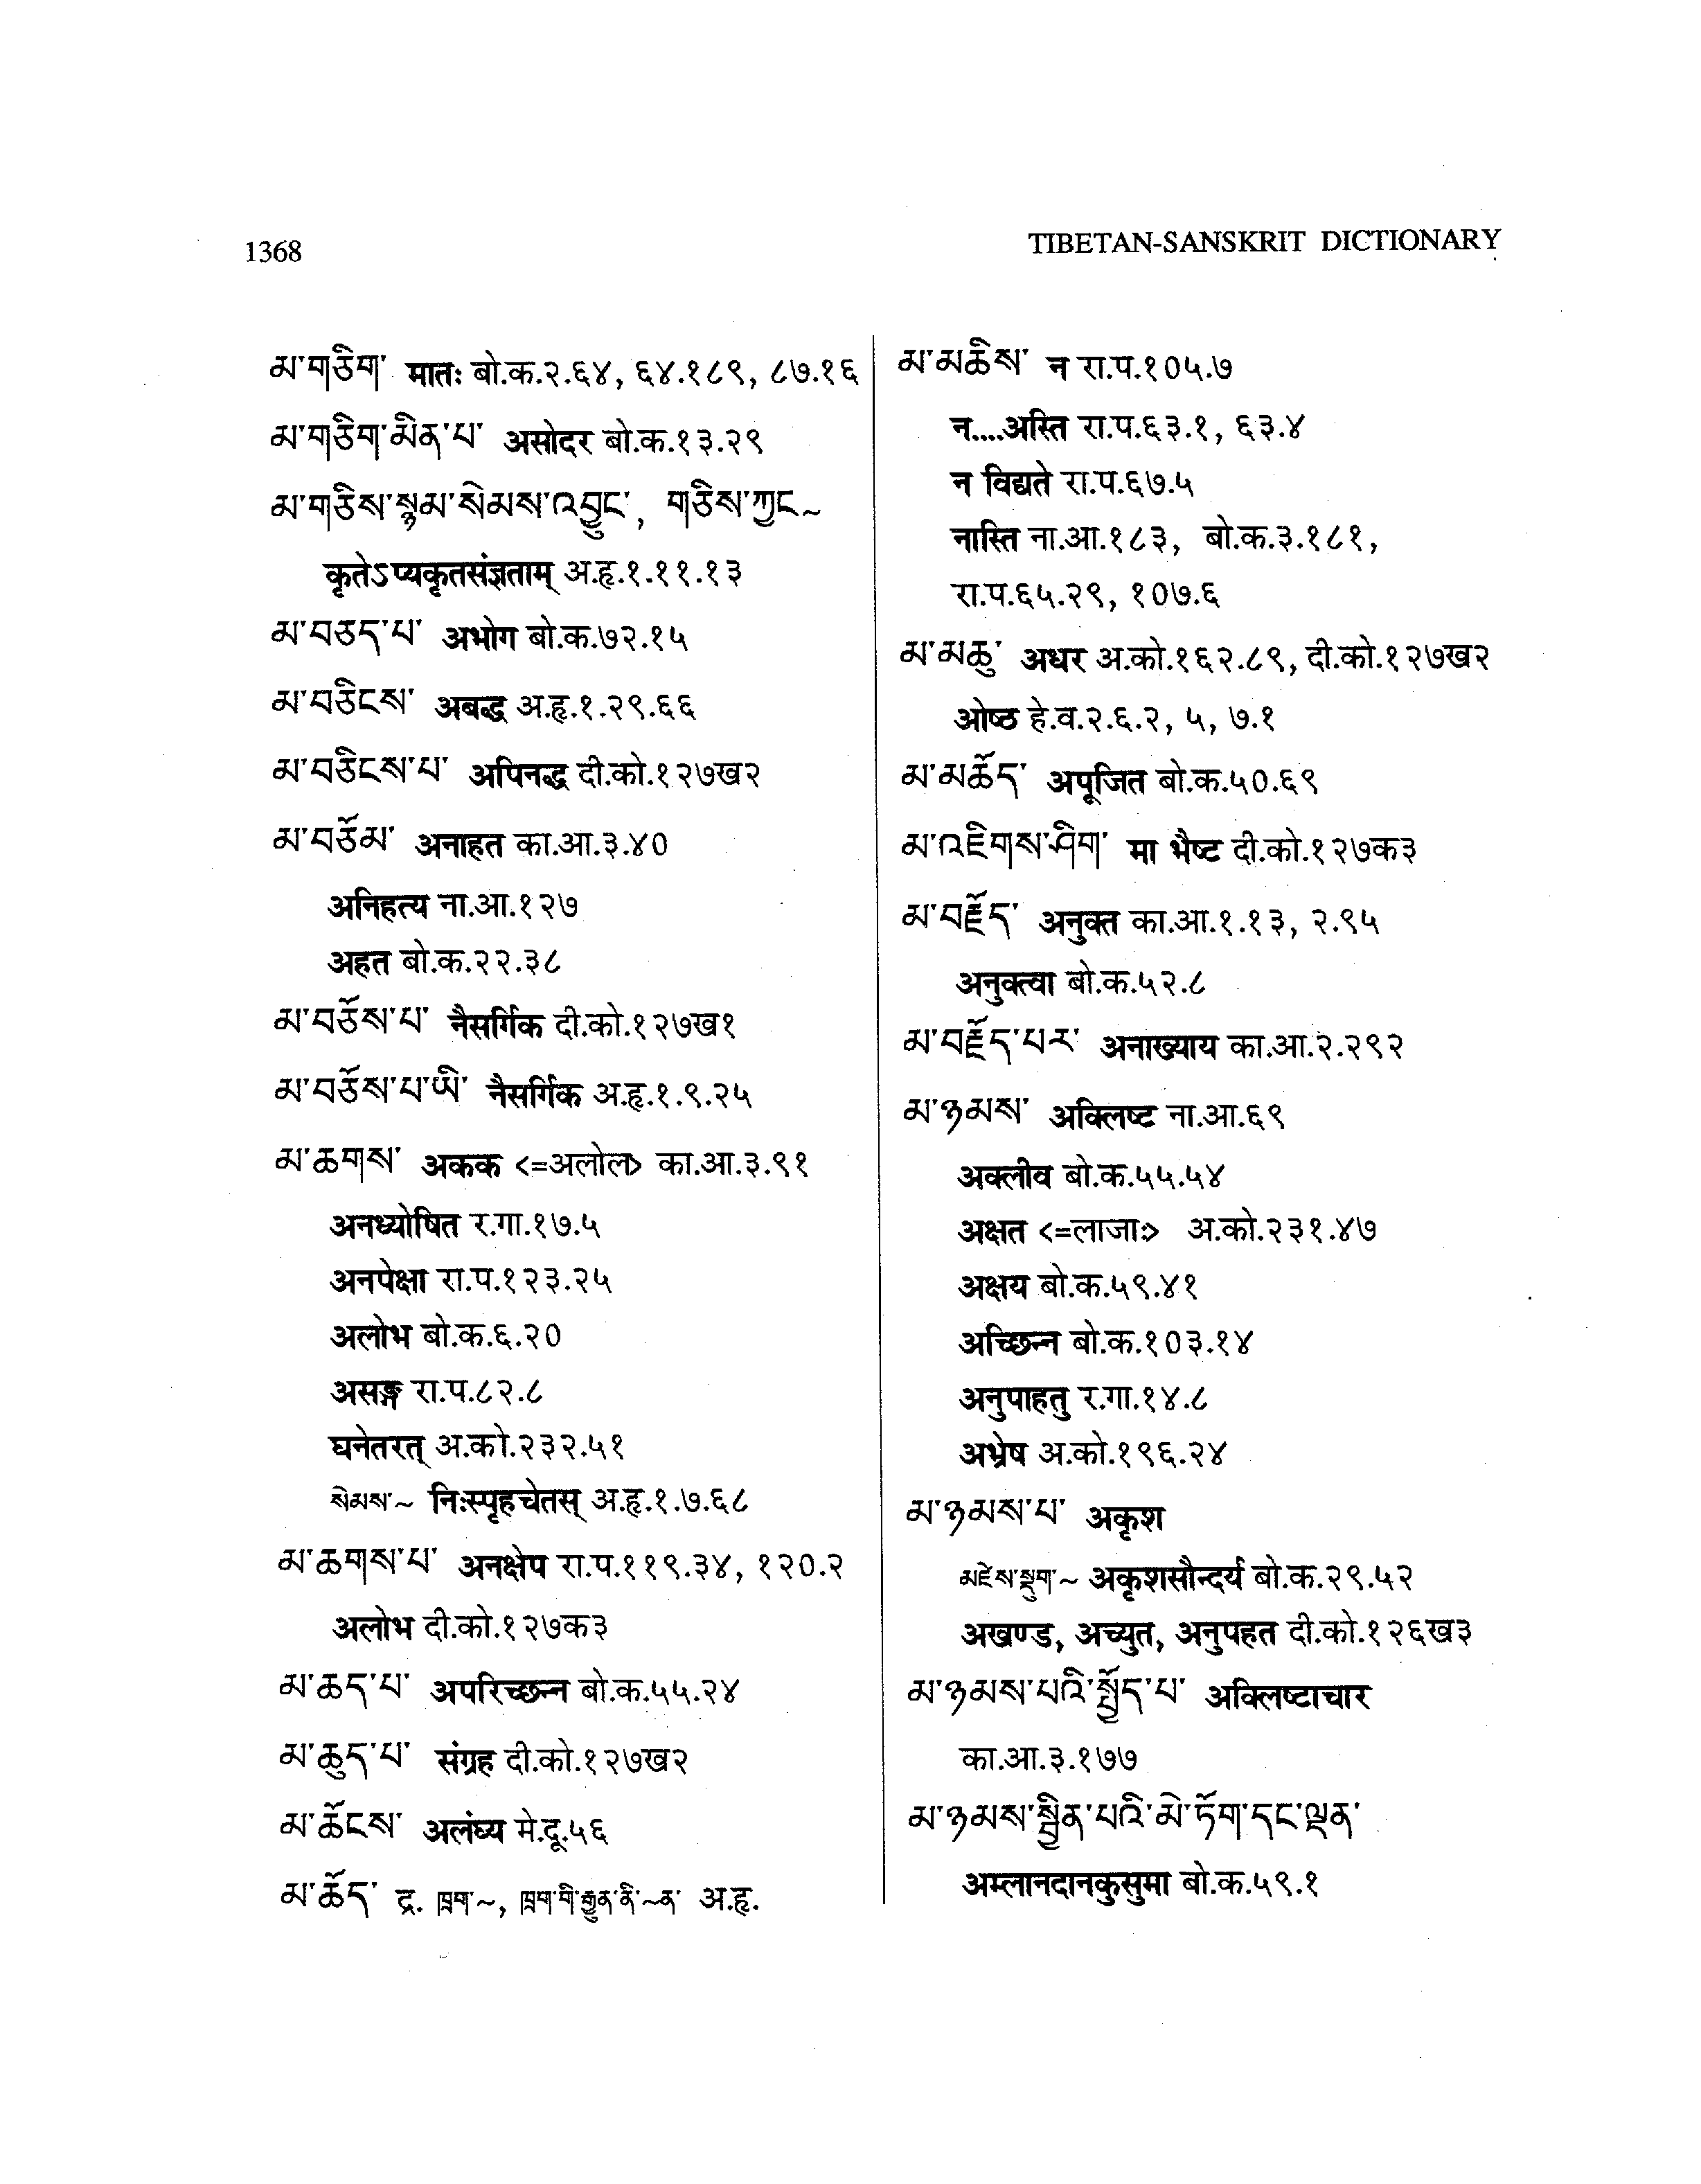 1368
TIBETAN-SANSKRIT DICTIONARY
མ་གཅིག་ मातः बो.क.२.६४, ६४.१८९, ८७.१६
མ་གཅིག་མིན་པ་ असोदर बो.क.१३.२९
མ་གཅིས་སྙམ་སེམས་འབྱུང་, གཅིས་ཀྱང~
कृतेऽप्यकृतसंज्ञताम् अ.हृ.१.११.१३
མ་བཅད་པ་ अभोग बो.क.७२.१५
མ་བཅིངས་ अबद्ध अ.हृ.१.२९.६६
མ་བཅིངས་པ་ अपिनद्ध दी.को.१२७ख२
མ་བཅོམ་ अनाहत का.आ.३.४०
अनिहत्य ना.आ.१२७
अहत बो.क.२२.३८
མ་བཅོས་པ་ नैसर्गिक दी.को.१२७ख१
མ་བཅོས་པ་ཡི་ नैसर्गिक अ.हृ.१.९.२५
མ་ཆགས་ अकक <=अलोल> का.आ.३.९१
अनध्योषित र.गा.१७.५
अनपेक्षा रा.प.१२३.२५
अलोभ बो.क.६.२०
असङ्ग रा.प.८२.८
घनेतरत् अ.को.२३२.५१
སེམས་~ निःस्पृहचेतस् अ.हृ.१.७.६८
མ་ཆགས་པ་ अनक्षेप रा.प.११९.३४, १२०.२
अलोभ दी.को.१२७क३
མ་ཆད་པ་ अपरिच्छन्न बो.क.५५.२४
མ་ཆུད་པ་ संग्रह दी.को.१२७ख२
མ་ཆོངས་ अलंघ्य मे.दू.५६
མ་ཆོད་ द्र. ཁྲག་~, ཁྲག་གི་རྒྱུན་ནི་~ན་ अ.हृ.
མ་མཆིས་ न रा.प.१०५.७
न....अस्ति रा.प.६३.१, ६३.४
न विद्यते रा.प.६७.५
नास्ति ना.आ.१८३, बो.क.३.१८१,
रा.प.६५.२९, १०७.६
མ་མཆུ་ अधर अ.को.१६२.८९, दी.को.१२७ख२
ओष्ठ हे.व.२.६.२, ५, ७.१
མ་མཆོད་ अपूजित बो.क.५०.६९
མ་འཇིགས་ཤིག་ मा भैष्ट दी.को.१२७क३
མ་བརྗོད་ अनुक्त का.आ.१.१३, २.९५
अनुक्त्वा बो.क.५२.८
མ་བརྗོད་པར་ अनाख्याय का.आ.२.२९२
མ་ཉམས་ अक्लिष्ट ना.आ.६९
अक्लीव बो.क.५५.५४
अक्षत <=लाजाः> अ.को.२३१.४७
अक्षय बो.क.५९.४१
अच्छिन्न बो.क.१०३.१४
अनुपाहतु र.गा.१४.८
अभ्रेष अ.को.१९६.२४
མ་ཉམས་པ་ अकृश
མཛེས་སྡུག་~ अकृशसौन्दर्य बो.क.२९.५२
अखण्ड, अच्युत, अनुपहत दी.को.१२६ख३
མ་ཉམས་པའི་སྤྱོད་པ་ अक्लिष्टाचार
का.आ.३.१७७
མ་ཉམས་སྦྱིན་པའི་མེ་ཏོག་དང་ལྡན་
अम्लानदानकुसुमा बो.क.५९.१